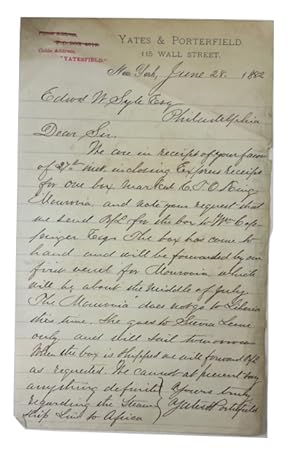 YATES & PORTERFIELD
115 WALL STREET.
P.O. BOX
Cable Address,
"YATESFIELD."
New York, June 28, 1882
Edwd W. Syle Esq
Philadelphia
Dear Sir.
We are in receipt of your favor
of 27th inst. including Express receipt
for one box marked C. T. O King
Monrovia and note your request that
we send B/L for the box to Wm Cop-
pinger Esq. The box has come to
hand and will be forwarded by our
first vessel for Monrovia which
will be about the middle of July.
The "Monrovia" does not go to Liberia
this time. She goes to Sierra Leone
only and will sail tomorrow
When the box is shipped we will forward B/L
as requested. We cannot at present say
anything definite
regarding the Steam
ship Line to Africa
Yours truly
Yates & Porterfield